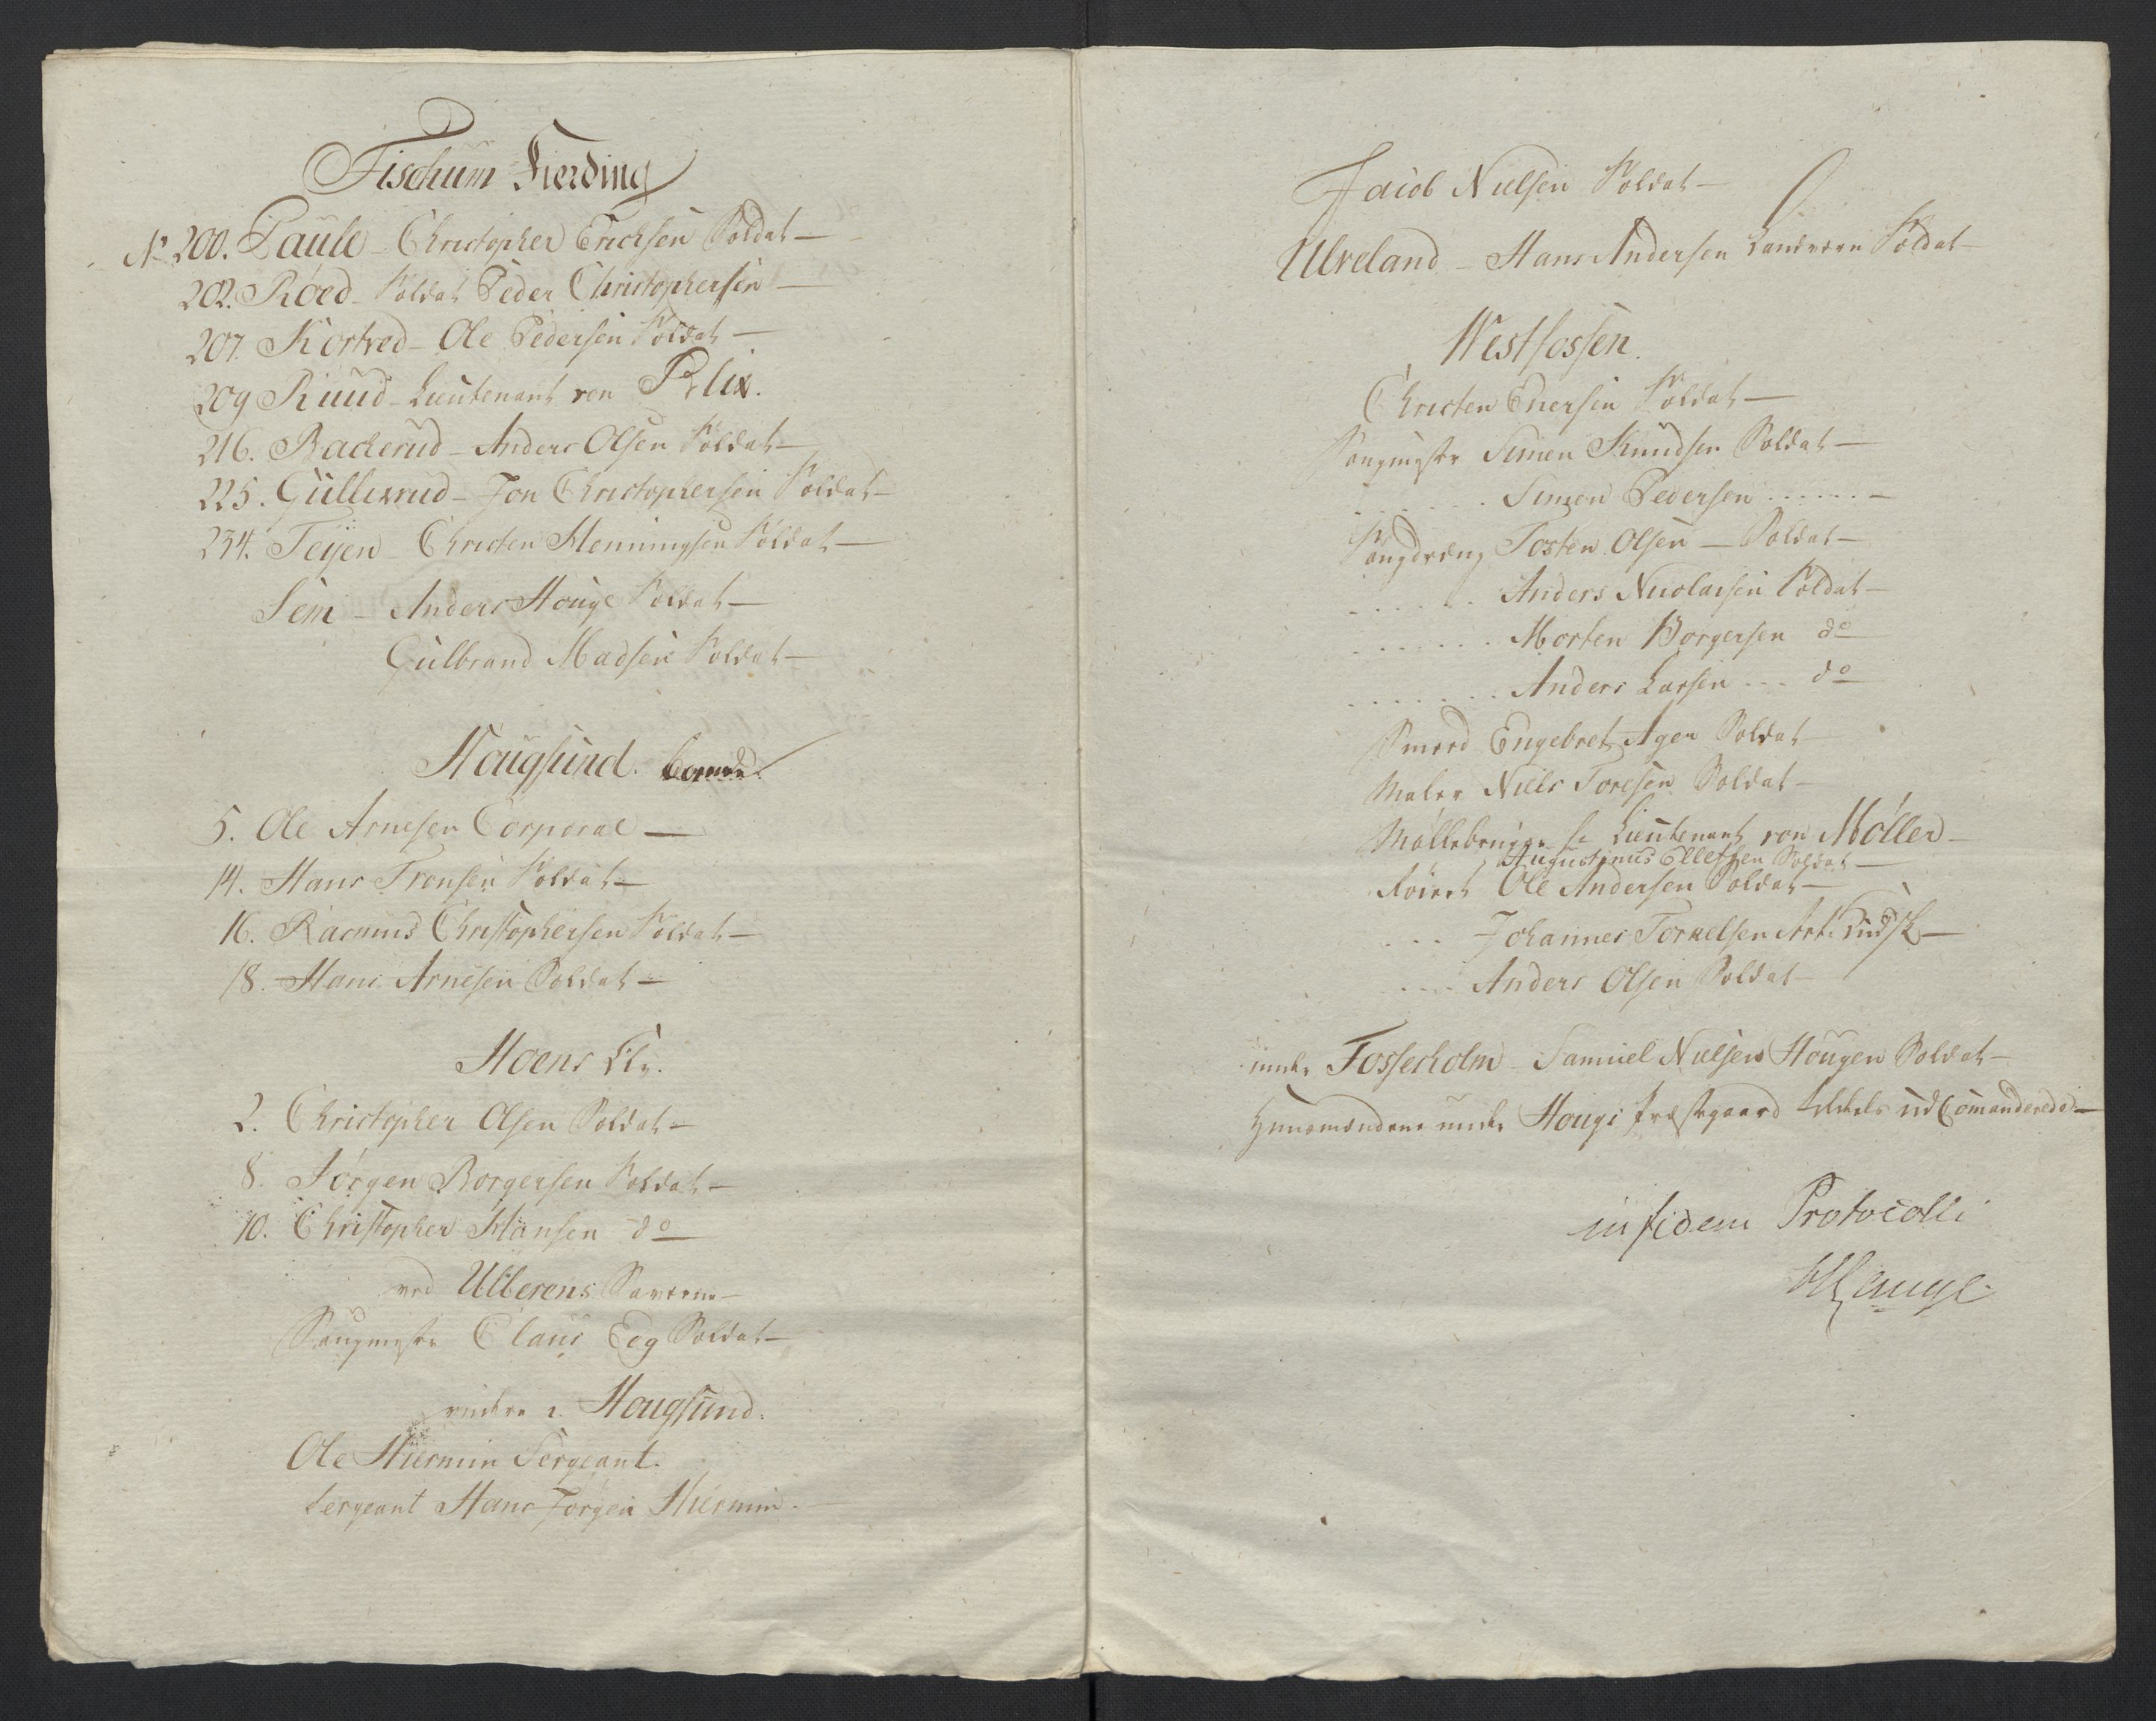 Fischum Fierding
No 200. Paule - Christopher Erichsen Soldat -
202. Röed - Soldat Peder Christophersen -
207. Kortved - Ole Pedersen Soldat -
209 Ruud - Lieutenant von Pelix.
216. Backerud - Anders Olsen Soldat -
225. Gullixrud - Jon Christophersen Soldat -
234. Teyen - Christen Henningsen Soldat -
Sem - Anders Houge Soldat -
Gulbrand Madsen Soldat -
Hougsund.
5. Ole Arnesen Corporal -
14. Hans Tronsen Soldat -
16. Rasmus Christophersen Soldat -
18. Hans Arnesen Soldat -
Hoens
2. Christopher Olsen Soldat -
8. Jörgen Borgersen Soldat -
10. Christopher Hansen do
ved Ullerens Saverne -
Saugmester Claus Eeg Soldat -
videre i Hougsund.
Ole Hiermin Sergeant.
Sergeant Hans Jörgen Hiermin.
Jacob Nielsen Soldat -
Ulveland - Hans Andersen Landværn Soldat -
Westfossen.
Christen Enersen Soldat -
Simen Knudsen Soldat -
...... Simen Pedersen ...... -
Saugdreng Tosten Olsen - Soldat -
...... Anders Nicolaisen Soldat -
...... Morten Borgersen do
...... Anders Larsen ... do
Smeed Engebret Ager Soldat
Maler Niels Toresen Soldat -
Möllebruger Lieutenant von Möller -
Augustinus Ellefsen Soldat -
Ole Andersen Soldat -
... Johannes Torkelsen Art. Kudsk -
.... Anders Olsen Soldat -
under Fossesholm - Samuel Nielsen Hougen Soldat -
Huusmændene under Hougs Præstegaard udComanderede -
in fidem Protocolli
Hauge